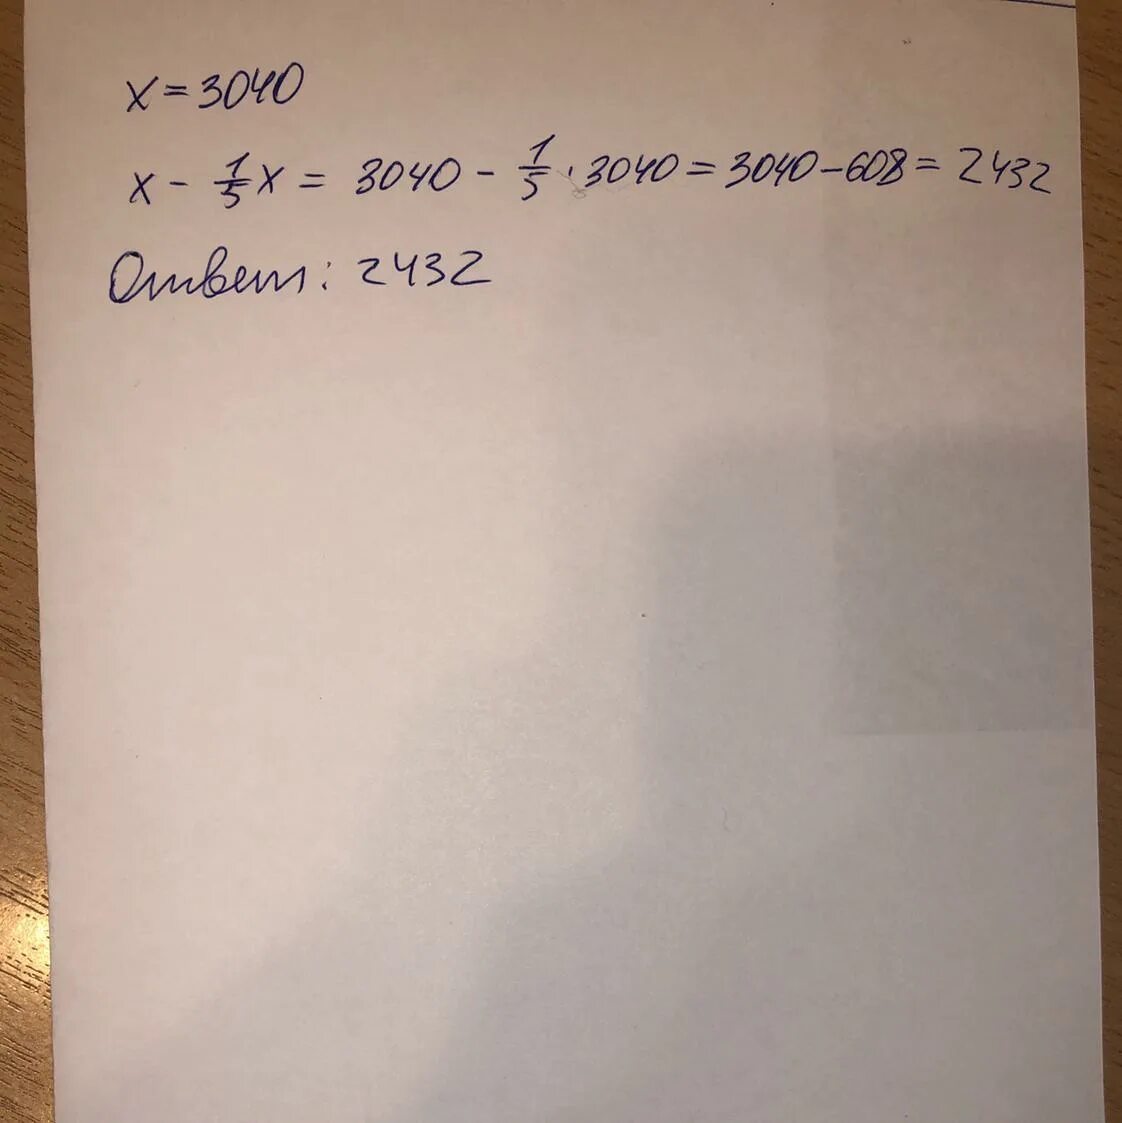 x = 3040
x - 1/5 x = 3040 - 1/5 · 3040 = 3040 - 608 = 2432
Ответ: 2432